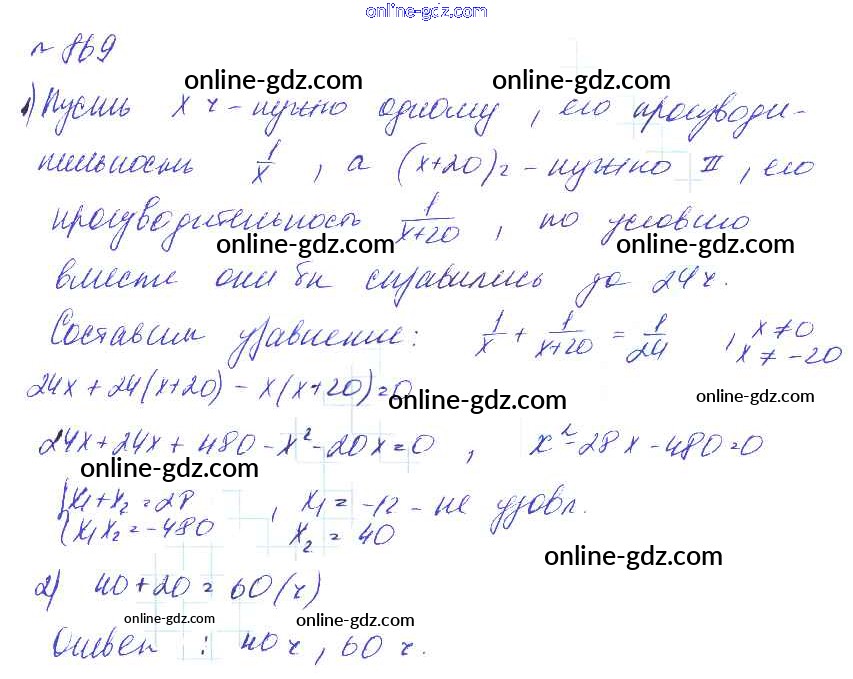 online-gdz.com
№ 869
online-gdz.com online-gdz.com
1) Пусть x ч - нужно одному, его производи-
тельность 1/x, а (x+20) ч - нужно II, его
производительность 1/(x+20), по условию
online-gdz.com online-gdz.com
вместе они бы справились за 24 ч.
Составим уравнение: 1/x + 1/(x+20) = 1/24, x ≠ 0
x ≠ -20
24x + 24(x+20) - x(x+20) = 0
online-gdz.com online-gdz.com
24x + 24x + 480 - x² - 20x = 0, x² - 28x - 480 = 0
online-gdz.com
{x₁ + x₂ = 28, x₁ = -12 - не удовл.
{x₁x₂ = -480 x₂ = 40
online-gdz.com
2) 40 + 20 = 60 (ч)
online-gdz.com online-gdz.com
Ответ: 40 ч, 60 ч.